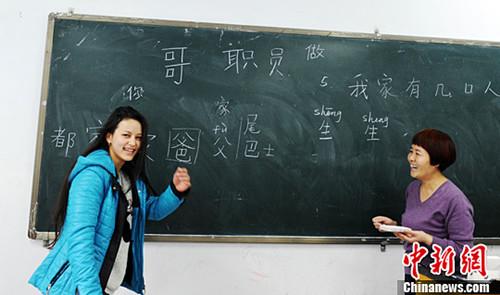 哥 职员 做
你
5. 我家有几口人
家
fù
父
尾
巴士
shēng sheng
生 生
都
爸
中新网
Chinanews.com